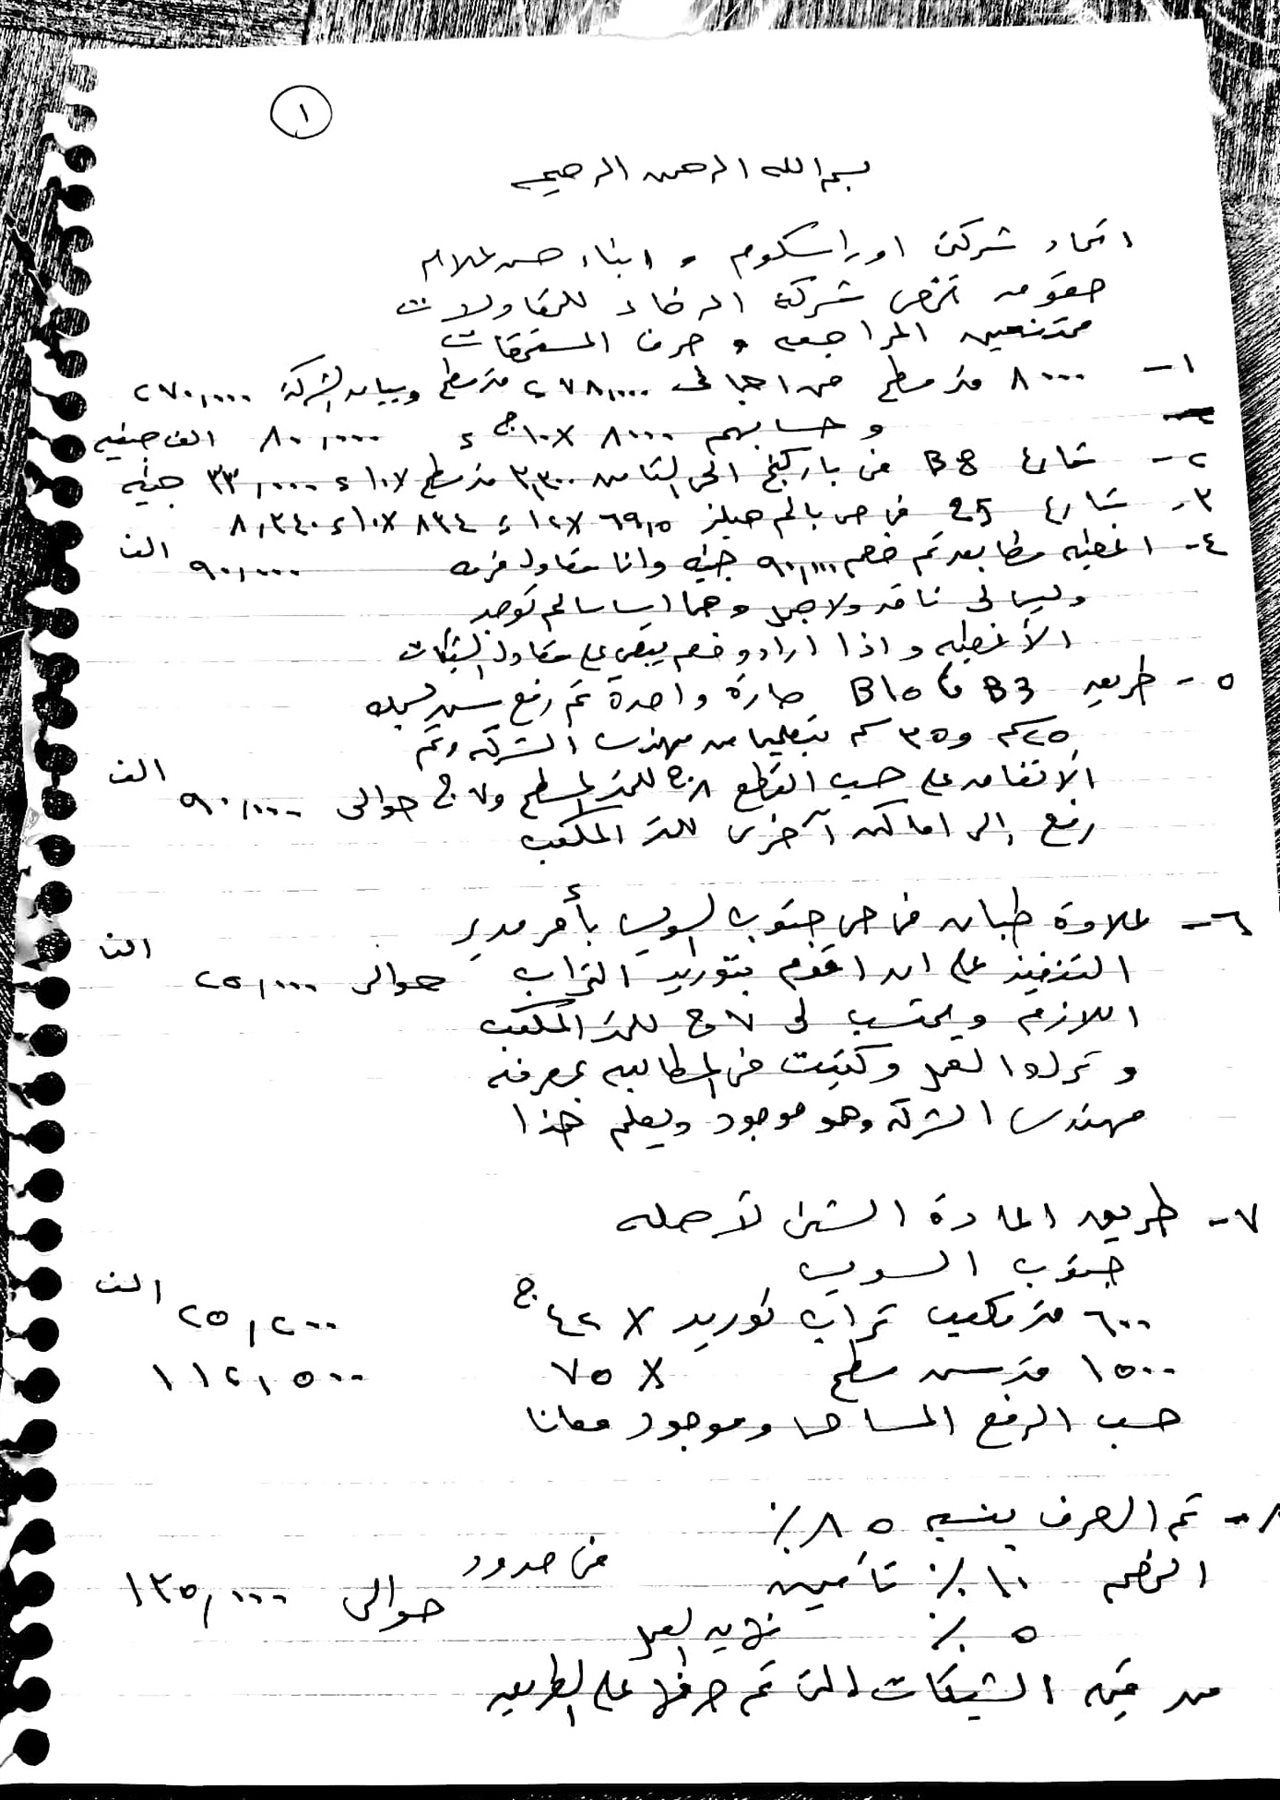 ١
بسم الله الرحمن الرحيم
اتحاد شركتى اوراسكوم و ابناء حسن علام
حقوق تخص شركة الرخاء للمقاولات
ممتنعين المراجعه و صرف المستحقات
١- ٨٠٠٠ متر مسطح من اجمالى ٢٧٨,٠٠٠ متر مسطح وبيان الشركة ٢٧٠,٠٠٠
وحسابهم ٨٠٠٠ × ١٠ج = ٨٠,٠٠٠ الف جنيه
٢- شارع B8 فى باركنج الحى الثامن ٣,٣٠٠ متر مسطح × ١٠ = ٣٣,٠٠٠ جنيه
٣- شارع 25 فى حى بالم هيلز ٦٩,٥ × ١٢ = ٨٣٤ × ١٠ = ٨,٣٤٠
٤- اغطيه مطابع تم خصم ٩٠,٠٠٠ جنيه وانا مقاول فرمه ٩٠,٠٠٠ الف
وليس لى ناقه ولا جمل وهما اساسا لم توجد
الأغطيه واذا ارادو خصم يبقى على مقاول الشبكات
٥- طريق B3 و B15 حارة واحدة تم رفع سن سمك
٢٥سم و٣٥ سم بتعليمات مهندس الشركه وتم
الاتفاق على حسب القطع ٨ج للمتر المسطح و٧ ج حوالى ٩٠,٠٠٠ الف
رفع إلى اماكن آخرى للمتر المكعب
٦- علاوة طبان فى حى جنوب السويس بأمر مدير
التنفيذ على ان اقوم بتوريد التراب حوالى ٢٥,٠٠٠ الف
اللازم ويحتسب لى ٧ ج للمتر المكعب
و نزلوا العمل وكتبت فى المطالبه بمعرفة
مهندس الشركه وهو موجود ويعلم هذا
٧- طريق المادة الشئ لآصله
جنوب السويس
٦٠٠ متر مكعب تراب توريد × ٤٢ ج ٢٥,٢٠٠ الف
١٥٠٠ متر سن سطح × ٧٥ ١١٢,٥٠٠
حسب الرفع المساحى وموجود معانا
٨- تم الصرف بنسبه ٨٥ ٪
الخصم ١٠ ٪ تأمين فى حدود حوالى ١٣٥,٠٠٠
٥ ٪ نهايه العمل
من قيمه الشيكات التى تم صرفها على الطريق